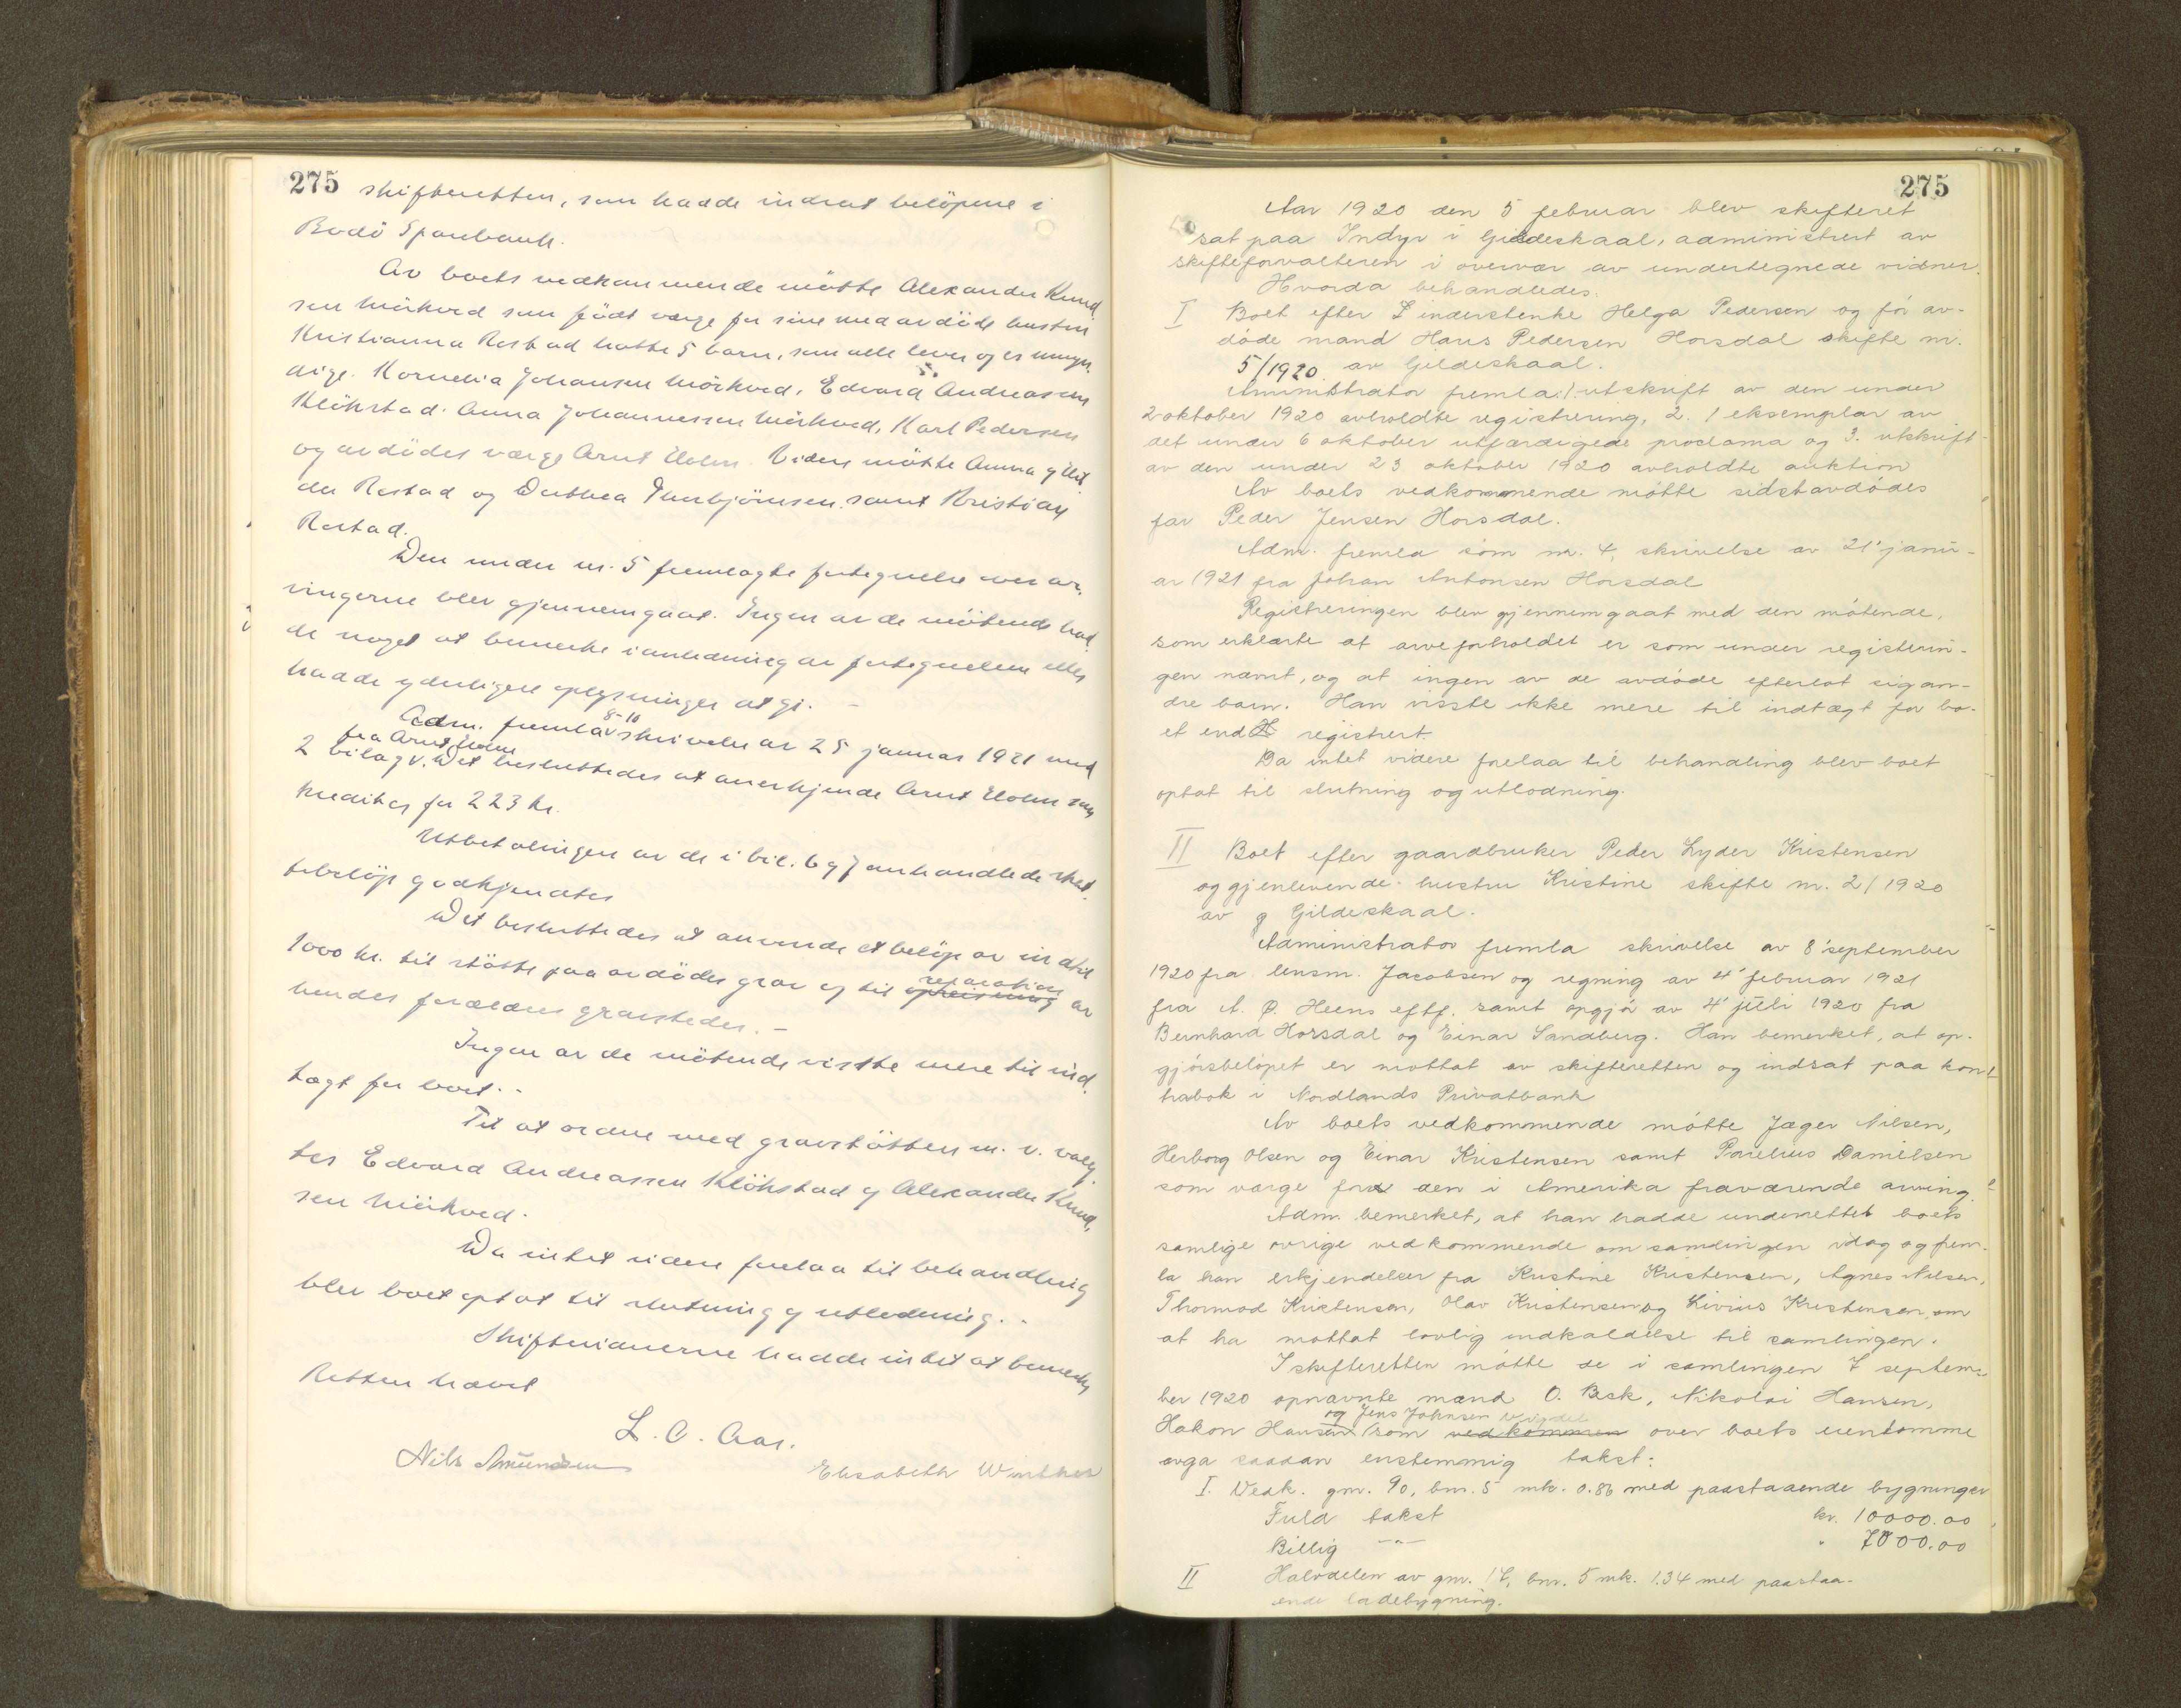 275
skifteretten, som hadde indsat beløpene i
Bodö Sparebank.
Av boets vedkommende mötte Alexander Knud-
sen Mörkved som födt verge for sine med avdöde hustru
Kristianna Restad hatte 5 barn, som alle lever og er umyn-
dige. Kornelia Johansen Mörkved, Edvard Andreassen
Klökstad. Anna Johannessen Mörkved, Karl Pedersen
og avdödes verge Arnt Holm. Videre mötte Anna og
Restad og Dorthea Thorbjörnsen samt Kristian
Restad.
Den under nr. 5 fremlagte fortegnelse over ar-
vingerne blev gjennemgaat. Ingen av de mötende had-
de noget at bemerke i anledning av fortegnelsen eller
hadde yderligere oplysninger at gi. –
Adm. fremla 8-10 skrivelse av 25 januar 1921 med
fra Arnt Holm
2 bilag v. Det besluttedes at anerkjende Arnt Holm som
kreditor for 223 kr.
Utbetalingen av de i bil. 6 og 7 omhandlede skat-
tebelöp godkjendtes
Det besluttedes at anvende et belöp av indtil
1000 kr. til stötte paa avdödes grav og til opreisning reparation av
hendes forældres gravsteder. –
Ingen av de mötende visste mere til ind-
tægt for boet. -
Til at ordne med gravstötten m. v. valg-
tes Edvard Andreassen Klökstad og Alexander Knud-
sen Mörkved.
Da intet videre forelaa til behandling
blev boet optat til slutning og utlodning. -
Skiftevidnerne hadde intet at bemerke
Retten hævet
L. C. Aas.
Nils Amundsen Elisabeth Winther
275
Aar 1920 den 5 februar blev skifteret
sat paa Indyr i Gildeskaal, administrert av
skifteforvalteren i overvær av undertegnede vidner.
Hvorda behandledes:
I Boet efter Inderstenke Helga Pedersen og før av-
døde mand Hans Pedersen Horsdal skifte nr.
5/1920 av Gildeskaal.
Aministrator fremla: 1. utskrift av den under
2 oktober 1920 avholdte registrering, 2. 1 eksemplar av
det under 6 oktober utfærdigede proclama og 3. utskrift
av den under 23 oktober 1920 avholdte auktion
Av boets vedkommende møtte sidstavdødes
far Peder Jensen Horsdal.
Adm. fremla som nr. 4, skrivelse av 21' janu-
ar 1921 fra Johan Antonsen Horsdal
Registreringen blev gjennemgaat med den møtende,
som erklærte at arveforholdet er som under registerin-
gen nævnt, og at ingen av de avdøde efterlot sig an-
dre barn. Han visste ikke mere til indtægt for bo-
et end registrert.
Da intet videre forelaa til behandling blev boet
optat til slutning og utlodning.
II Boet efter gaardbruker Peder Lyder Kristensen
og gjenlevende hustru Kristine skifte nr. 2/1920
av g Gildeskaal.
Administrator fremla skrivelse av 8' september
1920 fra lensm. Jacobsen og regning av 4' februar 1921
fra A. Ø. Heens eftf. samt opgjør av 4' juli 1920 fra
Bernhard Horsdal og Einar Sandberg. Han bemerket, at op-
gjørsbeløpet er mottat av skifteretten og indsat paa kont
trabok i Nordlands Privatbank
Av boets vedkommende møtte Jæger Nilsen,
Herborg Olsen og Einar Kristensen samt Paulius Danielsen
som værge for den i Amerika fraværende arving.
Adm. bemerket, at han hadde underrettet boets
samlige øvrige vedkommende om samlingen idag og frem-
la han erkjendelser fra Kristine Kristensen, Agnes Nilsen,
Thormod Kristensen, Olav Kristensen og Livius Kristensen om
at ha mottat lovlig indkaldelse til samlingen.
I skifteretten møtte de i samlingen 7 septem-
ber 1920 opnævnte mænd O. Bek, Nikolai Hansen,
og Jens Johnsen
Hakon Hansen (som vedkommen over boets eiendomme
avga saadan enstemmig takst:
I. Vedk. gnr. 90, bnr. 5 mk. 0.86 med paastaaende bygninger
Fuld takst kr. 10000.00
Billig —"— " 7000.00
II Halvdelen av gnr. 17, bnr. 5 mk. 1.34 med paastaa-
ende ladebygning.